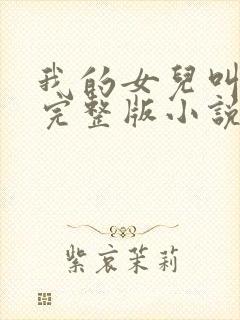 我的女兒叫
完整版小說
紫哀茉莉